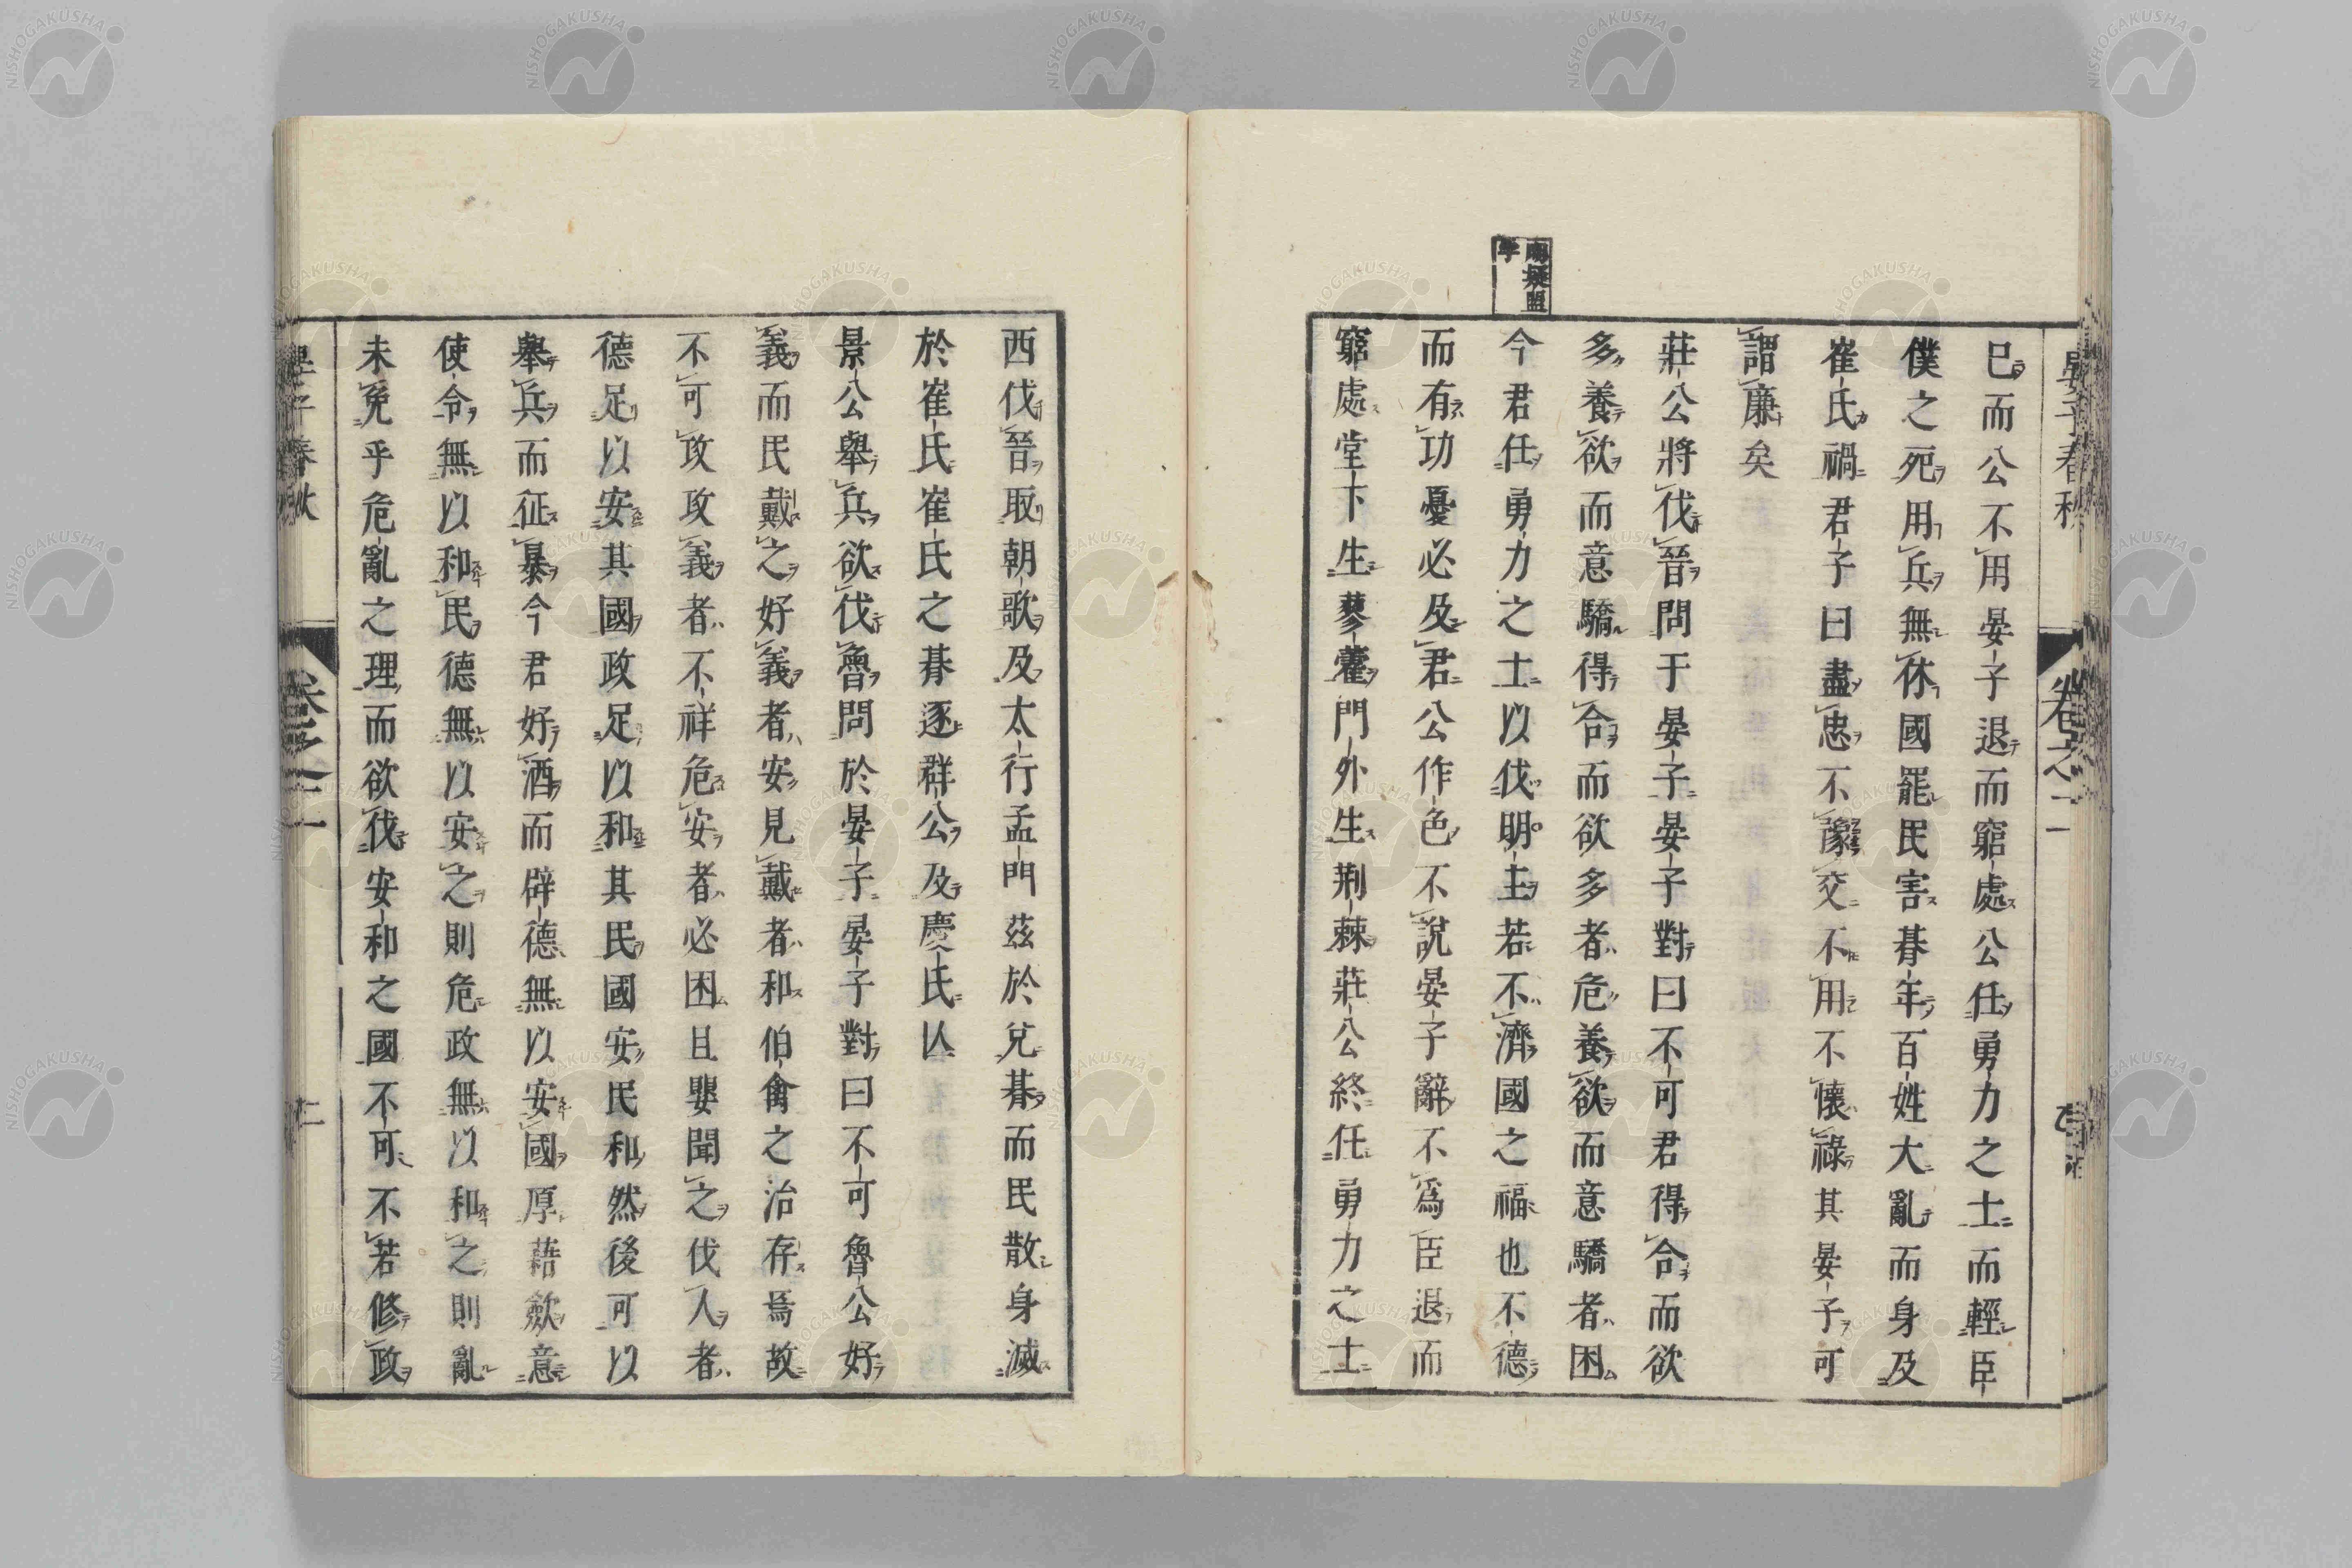 晏子春秋 卷之二
已而公不用晏子退而窮處公任勇力之士而輕臣
僕之死用兵無休國罷民害朞年百姓大亂而身及
崔氏禍君子曰盡忠不豫交不用不懷祿其晏子可
謂廉矣
莊公將伐晉問于晏子晏子對曰不可君得合而欲
多養欲而意驕得合而欲多者危養欲而意驕者困
今君任勇力之士以伐明主若不濟國之福也不德
而有功憂必及君公作色不說晏子辭不爲臣退而
窮處堂下生蓼藿門外生荆棘莊公終任勇力之士
西伐晉取朝歌及太行孟門茲於兌朞而民散身滅
於崔氏崔氏之朞逐群公及慶氏亾
景公舉兵欲伐魯問於晏子晏子對曰不可魯公好
義而民戴之好義者安見戴者和伯禽之治存焉故
不可攻攻義者不祥危安者必困且嬰聞之伐人者
德足以安其國政足以和其民國安民和然後可以
舉兵而征暴今君好酒而辟德無以安國厚藉歛意
使令無以和民德無以安之則危政無以和之則亂
未免乎危亂之理而欲伐安和之國不可不若修政
晏子春秋 卷之二
NISHOGAKUSHA